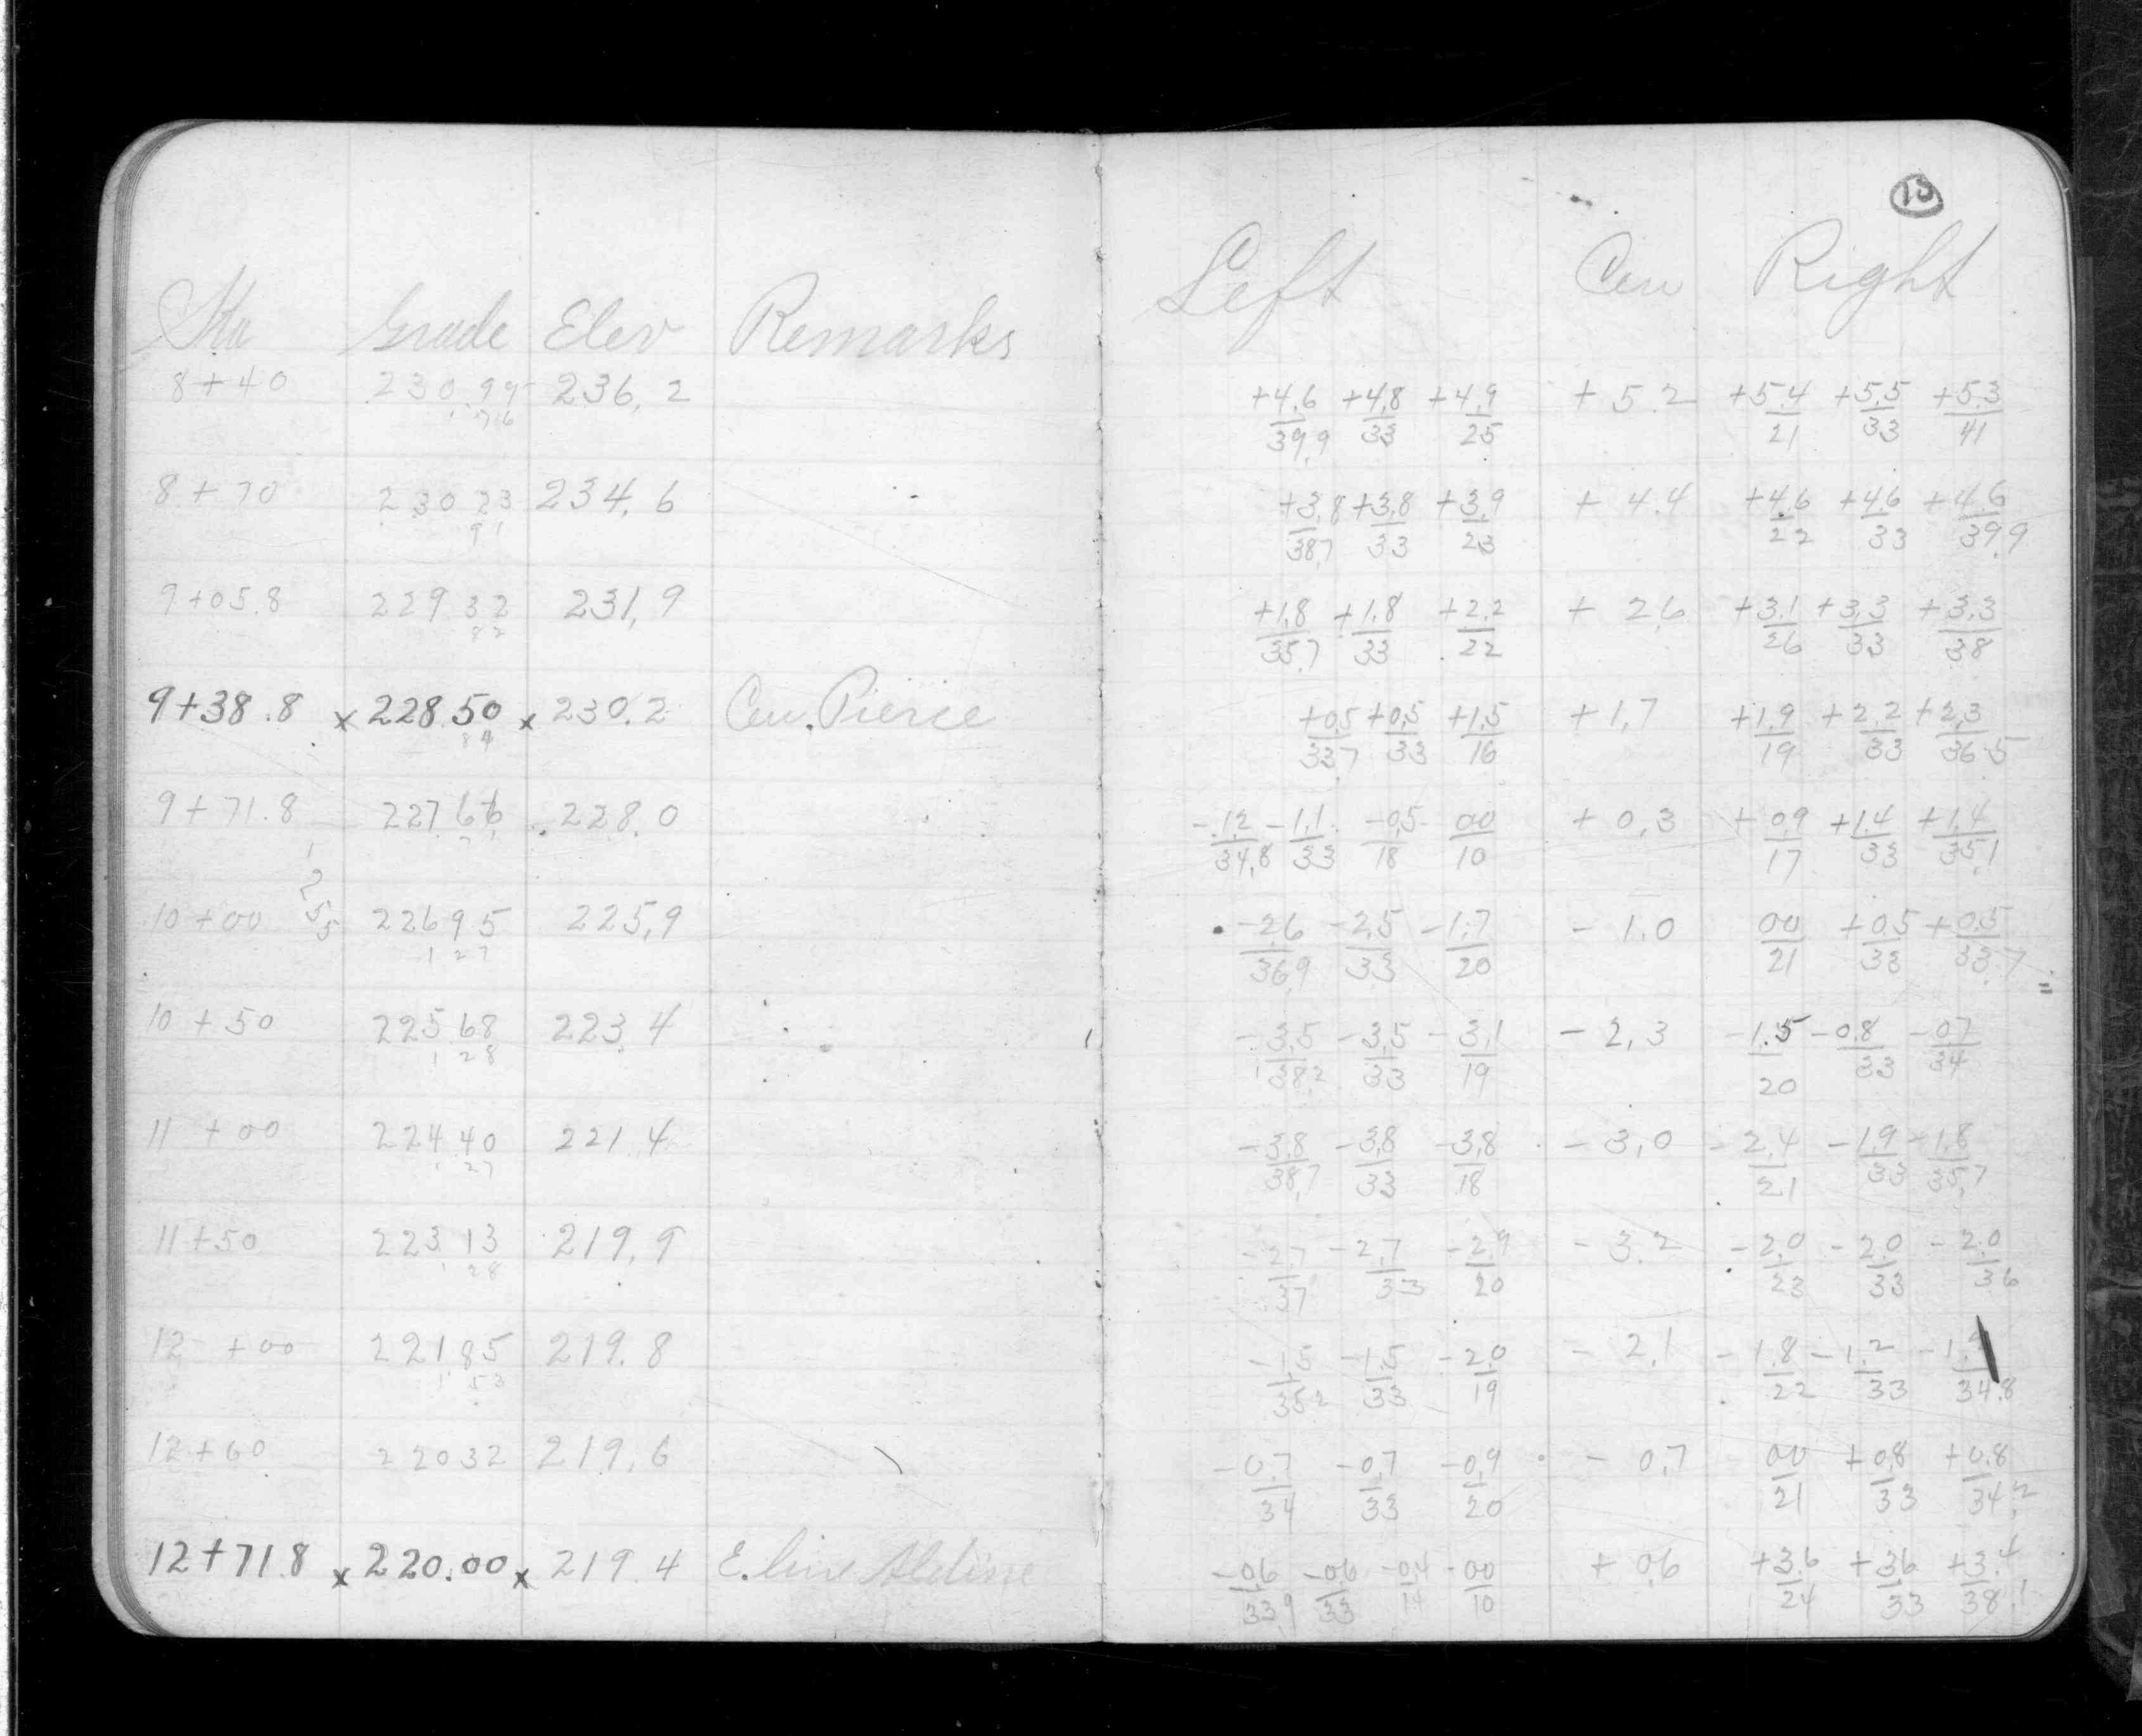 13
Sta Grade Elev Remarks Left Cen Right
8+40 230.99 236.2 +4.6 +4.8 +4.9 +5.2 +5.4 +5.5 +5.3
76 39.9 33 25 21 33 41
8+70 230 23 234.6 +3.8 +3.8 +3.9 +4.4 +4.6 +4.6 +4.6
91 38.7 33 23 22 33 39.9
9+05.8 229 32 231.9 +1.8 +1.8 +2.2 +2.6 +3.1 +3.3 +3.3
82 35.7 33 22 26 33 38
9+38.8 x 228.50 x 230.2 Cen. Pierce +0.5 +0.5 +1.5 +1.7 +1.9 +2.2 +2.3
84 33.7 33 16 19 33 36.5
9+71.8 227 66 228.0 -1.2 -1.1 -0.5 00 +0.3 +0.9 +1.4 +1.4
71 34.8 33 18 10 17 33 35.1
10+00 226 95 225.9 -2.6 -2.5 -1.7 -1.0 00 +0.5 +0.5
1 27 36.9 33 20 21 33 33.7
10+50 225 68 223.4 -3.5 -3.5 -3.1 -2.3 -1.5 -0.8 -0.7
1 28 38.2 33 19 20 33 34
11+00 224.40 221.4 -3.8 -3.8 -3.8 -3.0 -2.4 -1.9 -1.8
1 27 38.7 33 18 21 33 35.7
11+50 223 13 219.9 -2.7 -2.7 -2.9 -3.2 -2.0 -2.0 -2.0
1 28 37 33 20 23 33 36
12+00 221 85 219.8 -1.5 -1.5 -2.0 -2.1 -1.8 -1.2
1 53 35.2 33 19 22 33 34.8
12+60 220 32 219.6 -0.7 -0.7 -0.9 -0.7 00 +0.8 +0.8
34 33 20 21 33 34.2
12+71.8 x 220.00 x 219.4 E. line Aldine -0.6 -0.6 -0.4 -00 +0.6 +3.6 +3.6 +3.4
33.9 33 14 10 24 33 38.1